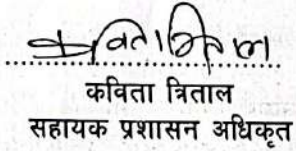 कविता त्रिताल
कविता त्रिताल
सहायक प्रशासन अधिकृत